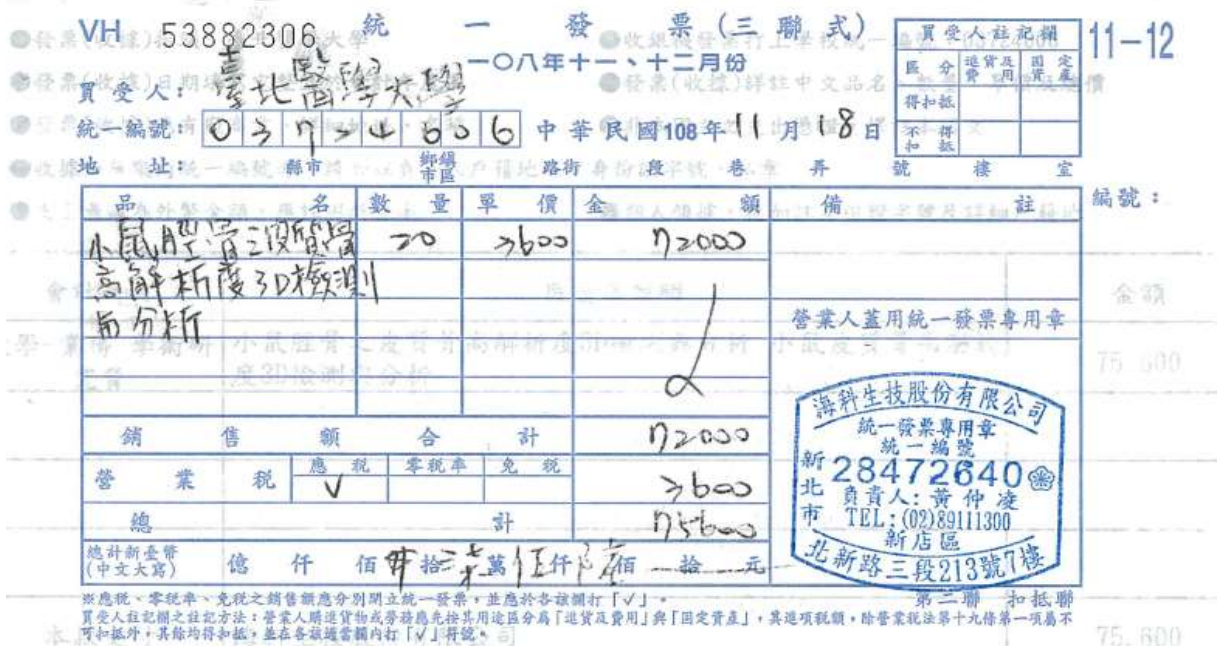 VH 53882306 統一發票(三聯式)
一○八年十一、十二月份
11-12
買受人註記欄
區分 進貨及費用 固定資產
得扣抵
不得扣抵
買受人: 臺北醫學大學
統一編號: 03724606 中華民國108年11月8日
地址: 縣市 鄉鎮市區 路街 段 巷 弄 號 樓 室
品名 數量 單價 金額 備註
編號:
小鼠脛骨之皮質骨 20 3600 72000
高解析度3D檢測
與分析
營業人蓋用統一發票專用章
銷售額合計 72000
營業稅 應稅 V 零稅率 免稅 3600
總計 75600
總計新臺幣(中文大寫) 億 仟 佰 拾 柒 萬 伍 仟 陸 佰 拾 元
海科生技股份有限公司
統一發票專用章
統一編號
28472640
負責人:黃仲凌
TEL:(02)89111300
新北市新店區
北新路三段213號7樓
第二聯 扣抵聯
※應稅、零稅率、免稅之銷售額應分別開立統一發票,並應於各該欄打「√」。
買受人註記欄之註記方法:營業人購進貨物或勞務應先按其用途區分為「進貨及費用」與「固定資產」,其進項稅額,除營業稅法第十九條第一項屬不
可扣抵外,其餘均得扣抵,並在各該適當欄內打「√」符號。
金額
75,600
75,600